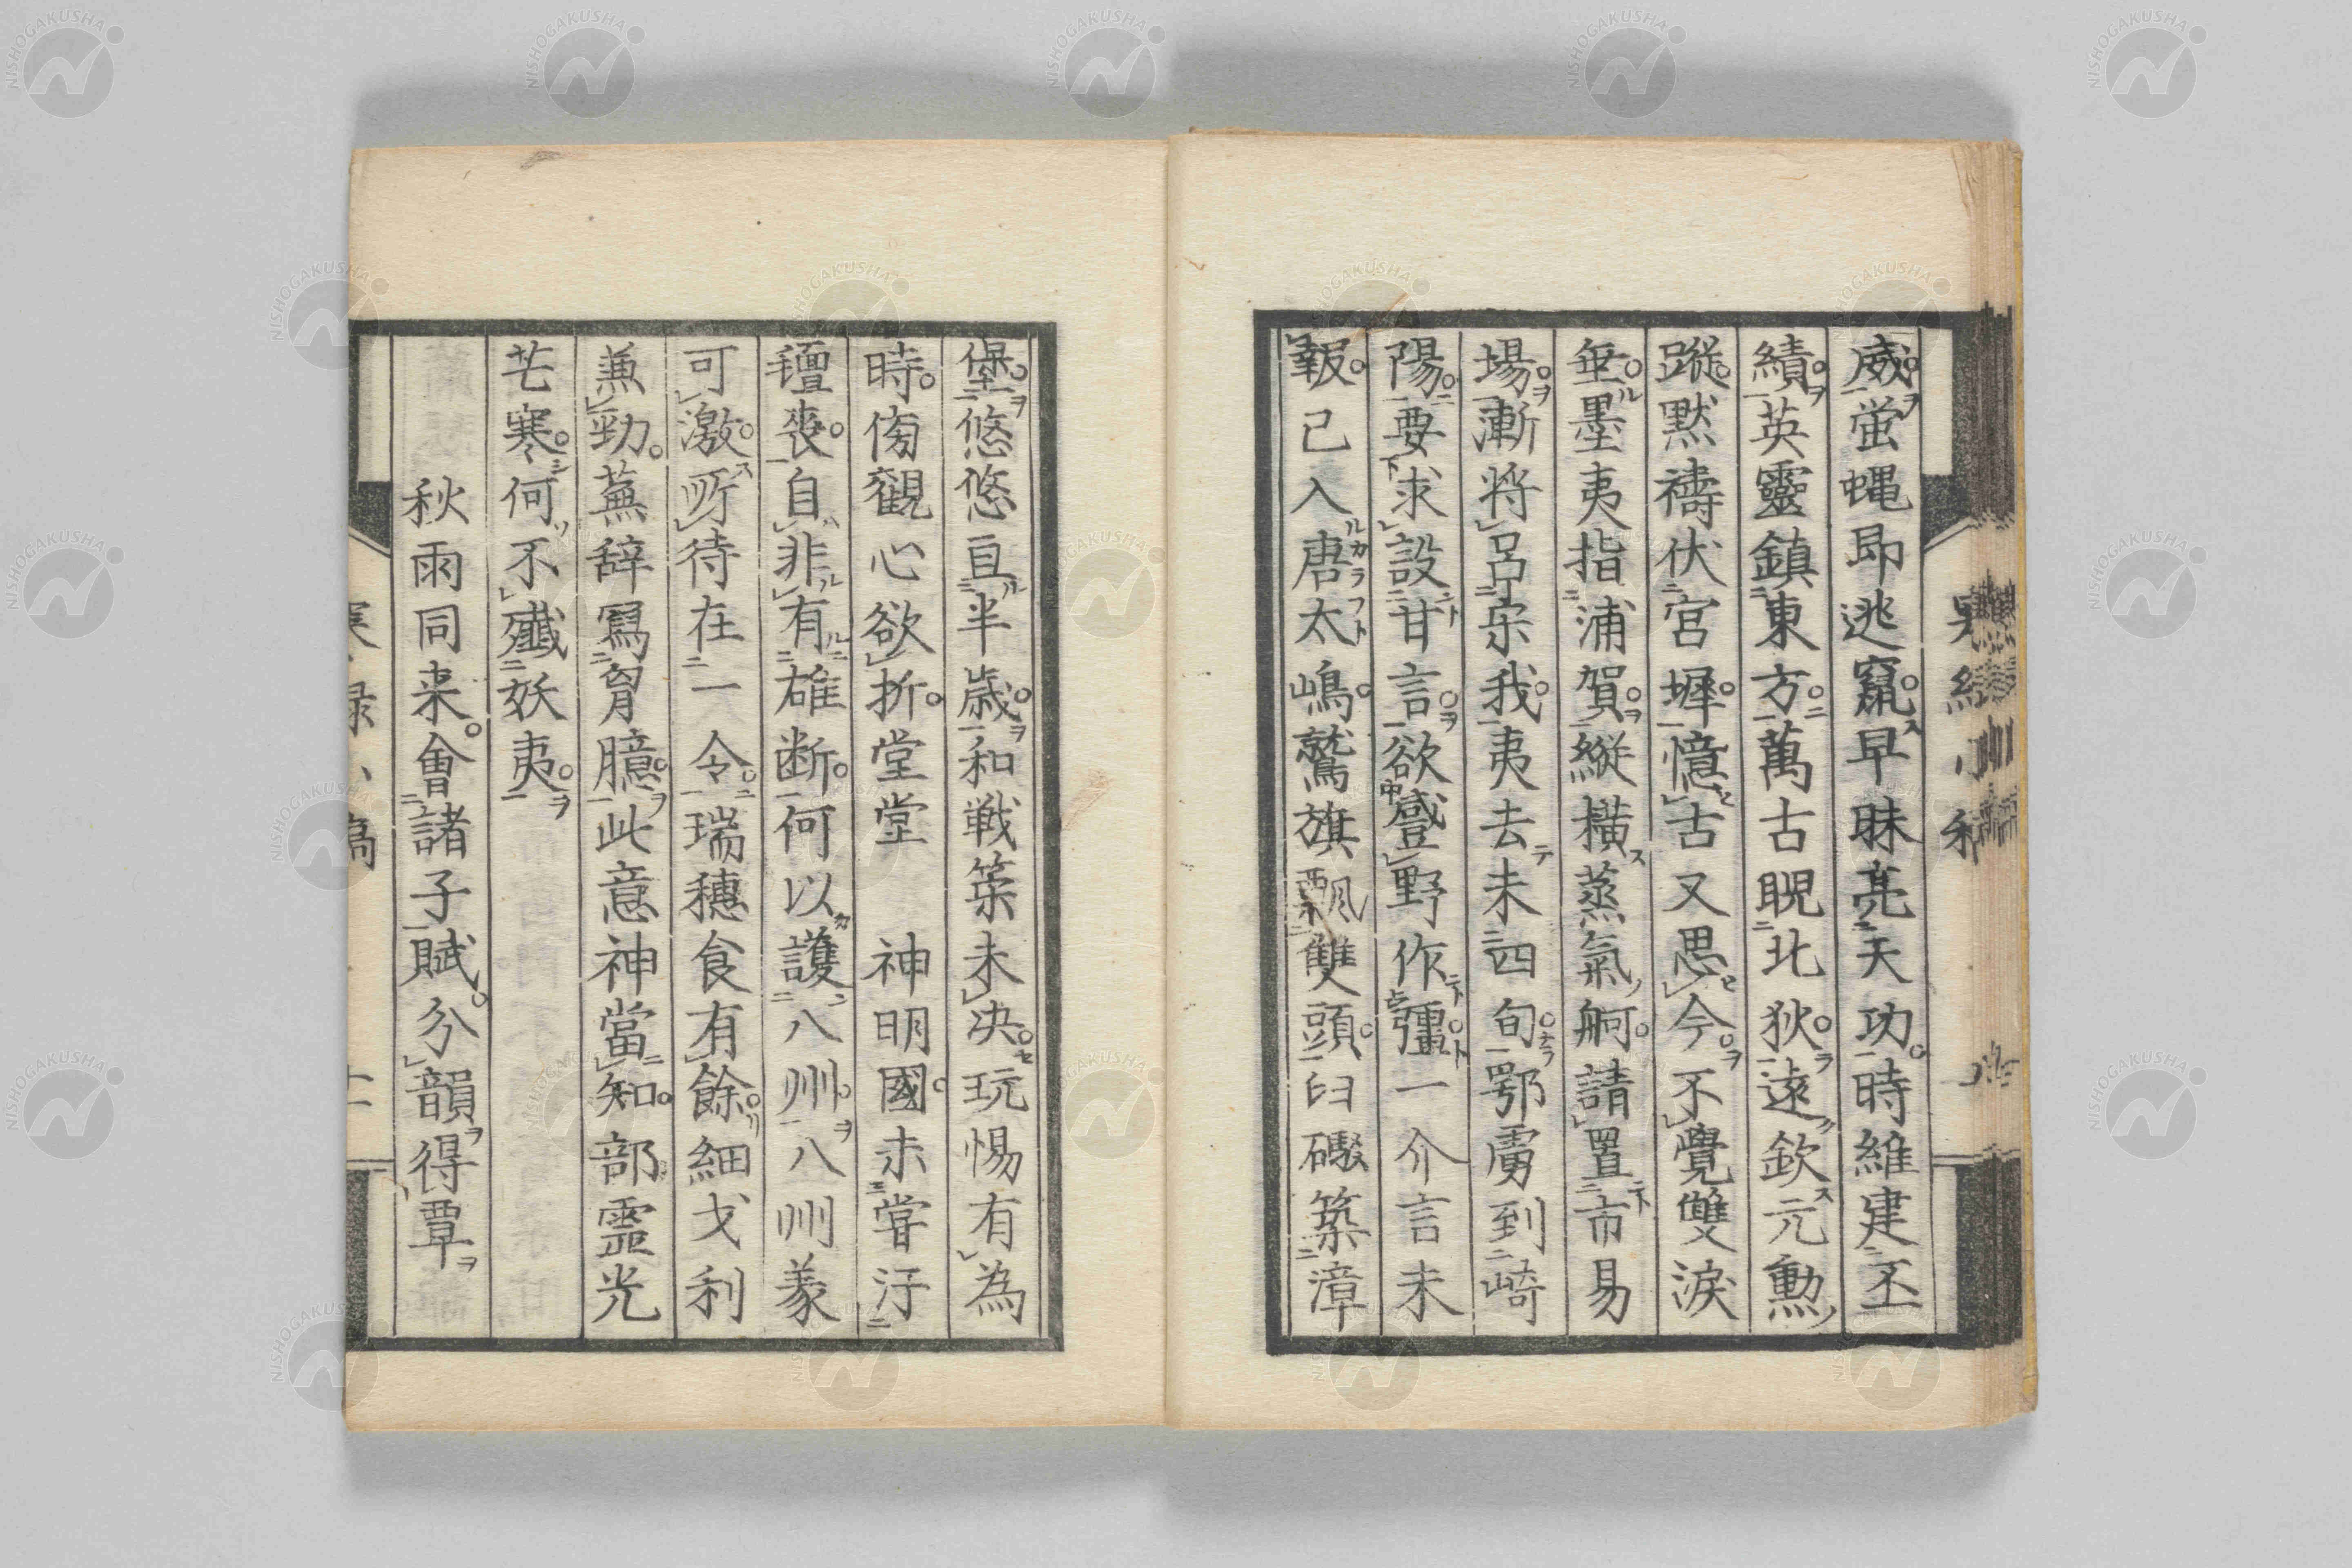 威蛍蝿即逃竄早昧亮天功時維建丕
績英靈鎮東方萬古睨北狄遠欽元勲
蹤默禱伏宮墀憶古又思今不覺雙淚
垂墨夷指浦賀縱横蒸氣舸請置市易
場漸將呂宋我夷去未四旬鄂虜到崎
陽要求設甘言欲盬野作彊一介言未
報已入唐太嶋鷲旗飄雙頭臼礮築漳
堡悠悠亘半歳和戦策未决玩惕有為
時傍觀心欲折堂堂 神明國未嘗汙
羶喪自非有雄断何以護八州八州義
可激所待在一令瑞穗食有餘細戈利
兼勁蕪辞寫胷臆此意神當知部靈光
芒寒何不殲妖夷
秋雨同来會諸子賦分韻得覃